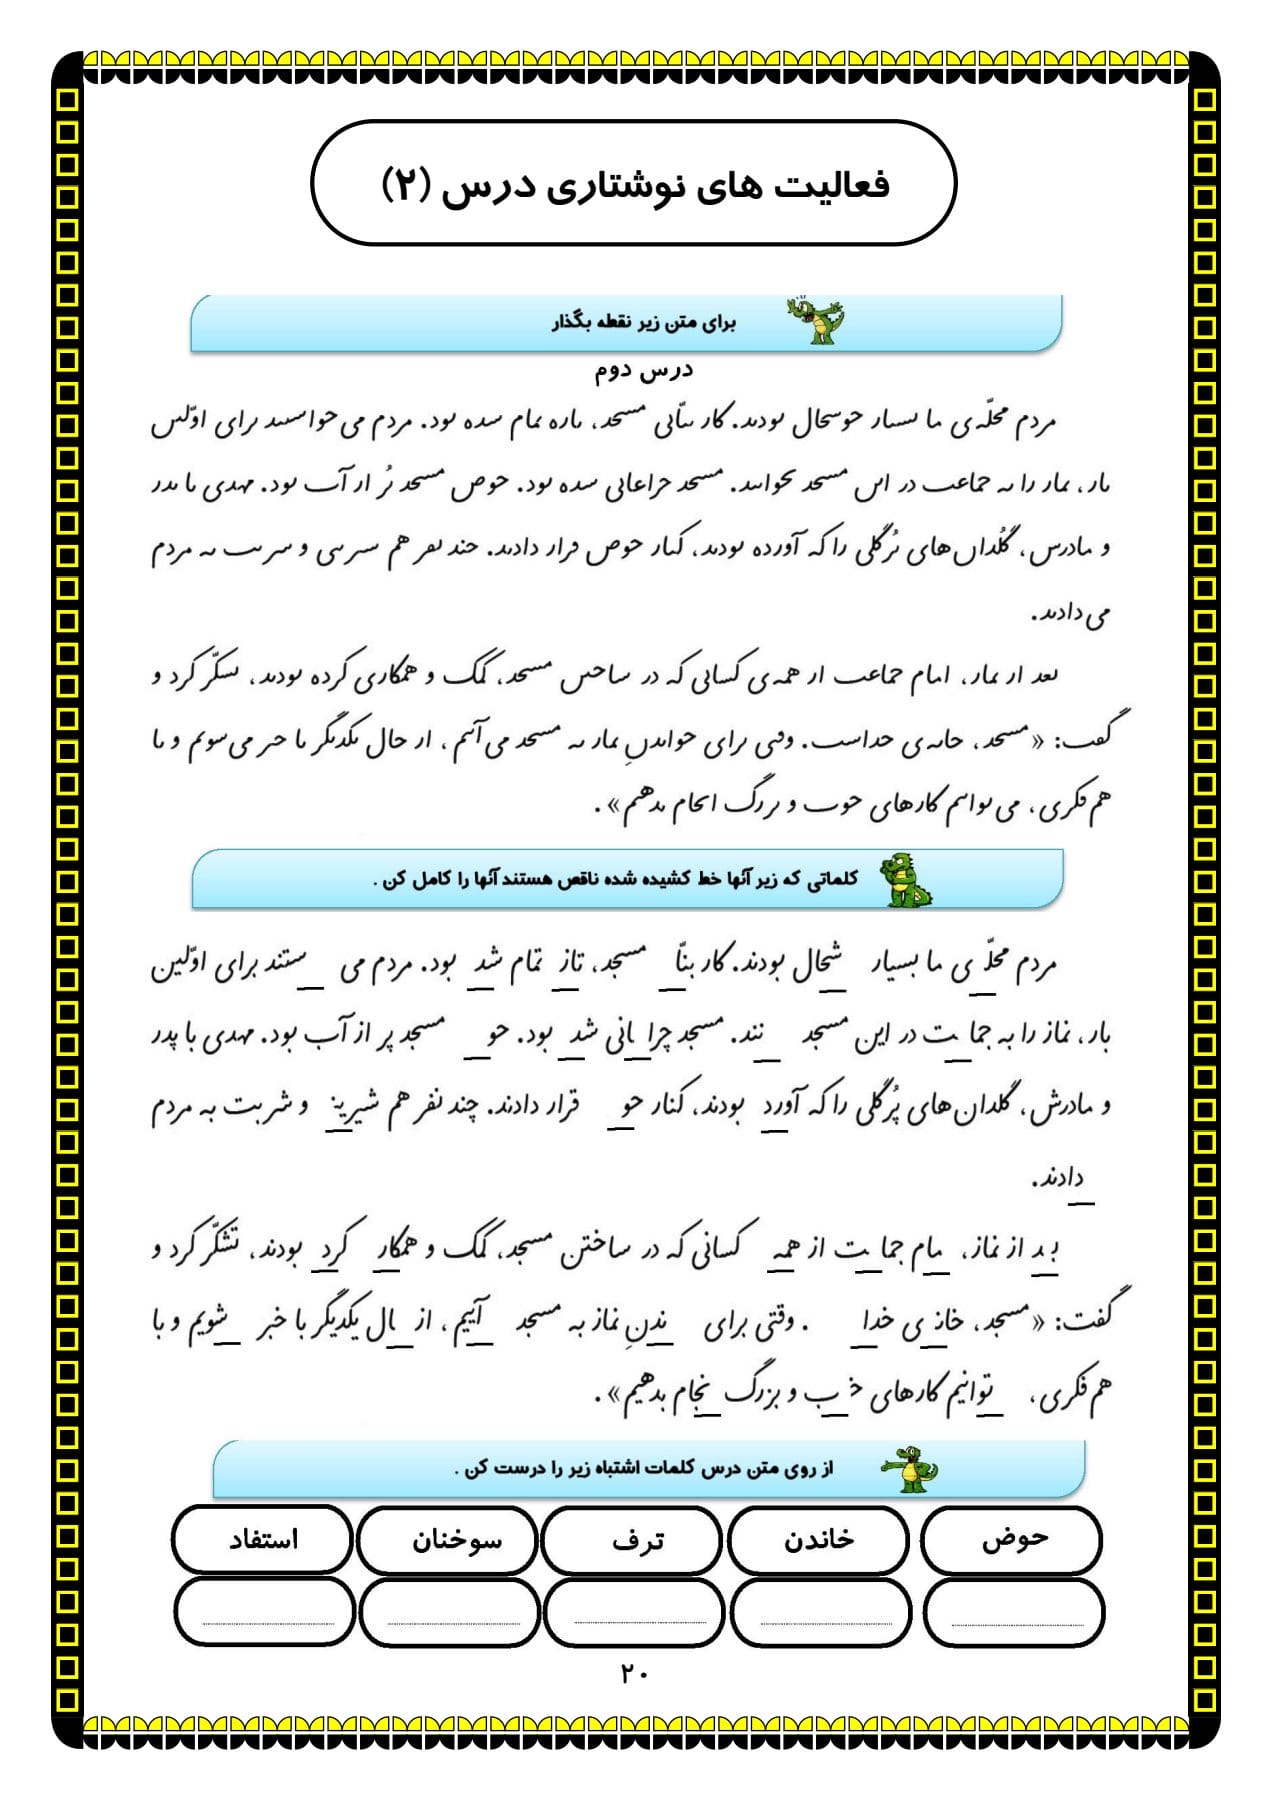 فعالیت های نوشتاری درس (۲)
برای متن زیر نقطه بگذار
درس دوم
مردم محلّه‌ی ما ٮسٮار حوسحال ٮودٮد. کار ٮٮّاٮی مسحد، ٮاره ٮمام سده ٮود. مردم می‌حواسٮٮد ٮرای اوّلٮں
ٮار، ٮمار را ٮه حماعٮ در اٮں مسحد ٮحواٮٮد. مسحد حراعاٮی سده ٮود. حوص مسحد ٮُر ار آٮ ٮود. مهدی ٮا ٮدر
و مادرس، گُلداں‌های ٮُرگلی را که آورده ٮودٮد، کٮار حوص ڡرار دادٮد. حٮد ٮڡر هم سٮرٮٮی و سرٮٮ ٮه مردم
می‌دادٮد.
ٮعد ار ٮمار، امام حماعٮ ار همه‌ی کساٮی که در ساحٮں مسحد، کمک و همکاری کرده ٮودٮد، ٮسکّر کرد و
گڡٮ: «مسحد، حاٮه‌ی حداسٮ. وڡٮی ٮرای حواٮدںِ ٮمار ٮه مسحد می‌آٮٮم، ار حال ٮکدٮگر ٮا حٮر می‌سوٮم و ٮا
هم‌ڡکری، می‌ٮواٮٮم کارهای حوٮ و ٮررگ اٮحام ٮدهٮم».
کلماتی که زیر آنها خط کشیده شده ناقص هستند آنها را کامل کن .
مردم محلّـ ی ما بسیار شحال بودند. کار بنّا مسجد، تاز تمام شد بود. مردم می ستند برای اوّلین
بار، نماز را به جما ـت در این مسجد نند. مسجد چرا ـانی شد بود. حو مسجد پر از آب بود. مهدی با پدر
و مادرش، گلدان‌های پُرگلی را که آورد بودند، کنار حو قرار دادند. چند نفر هم شیریـنـ و شربت به مردم
دادند.
بـ ـد از نماز، مام جما ـت از همه کسانی که در ساختن مسجد، کمک و همکار کرد بودند، تشکّر کرد و
گفت: «مسجد، خانـ ی خدا . وقتی برای ندنِ نماز به مسجد آییم، از ـال یکدیگر با خبر شویم و با
هم‌فکری، توانیم کارهای خـ ـب و بزرگ نجام بدهیم».
از روی متن درس کلمات اشتباه زیر را درست کن .
حوض خاندن ترف سوخنان استفاد
۲۰